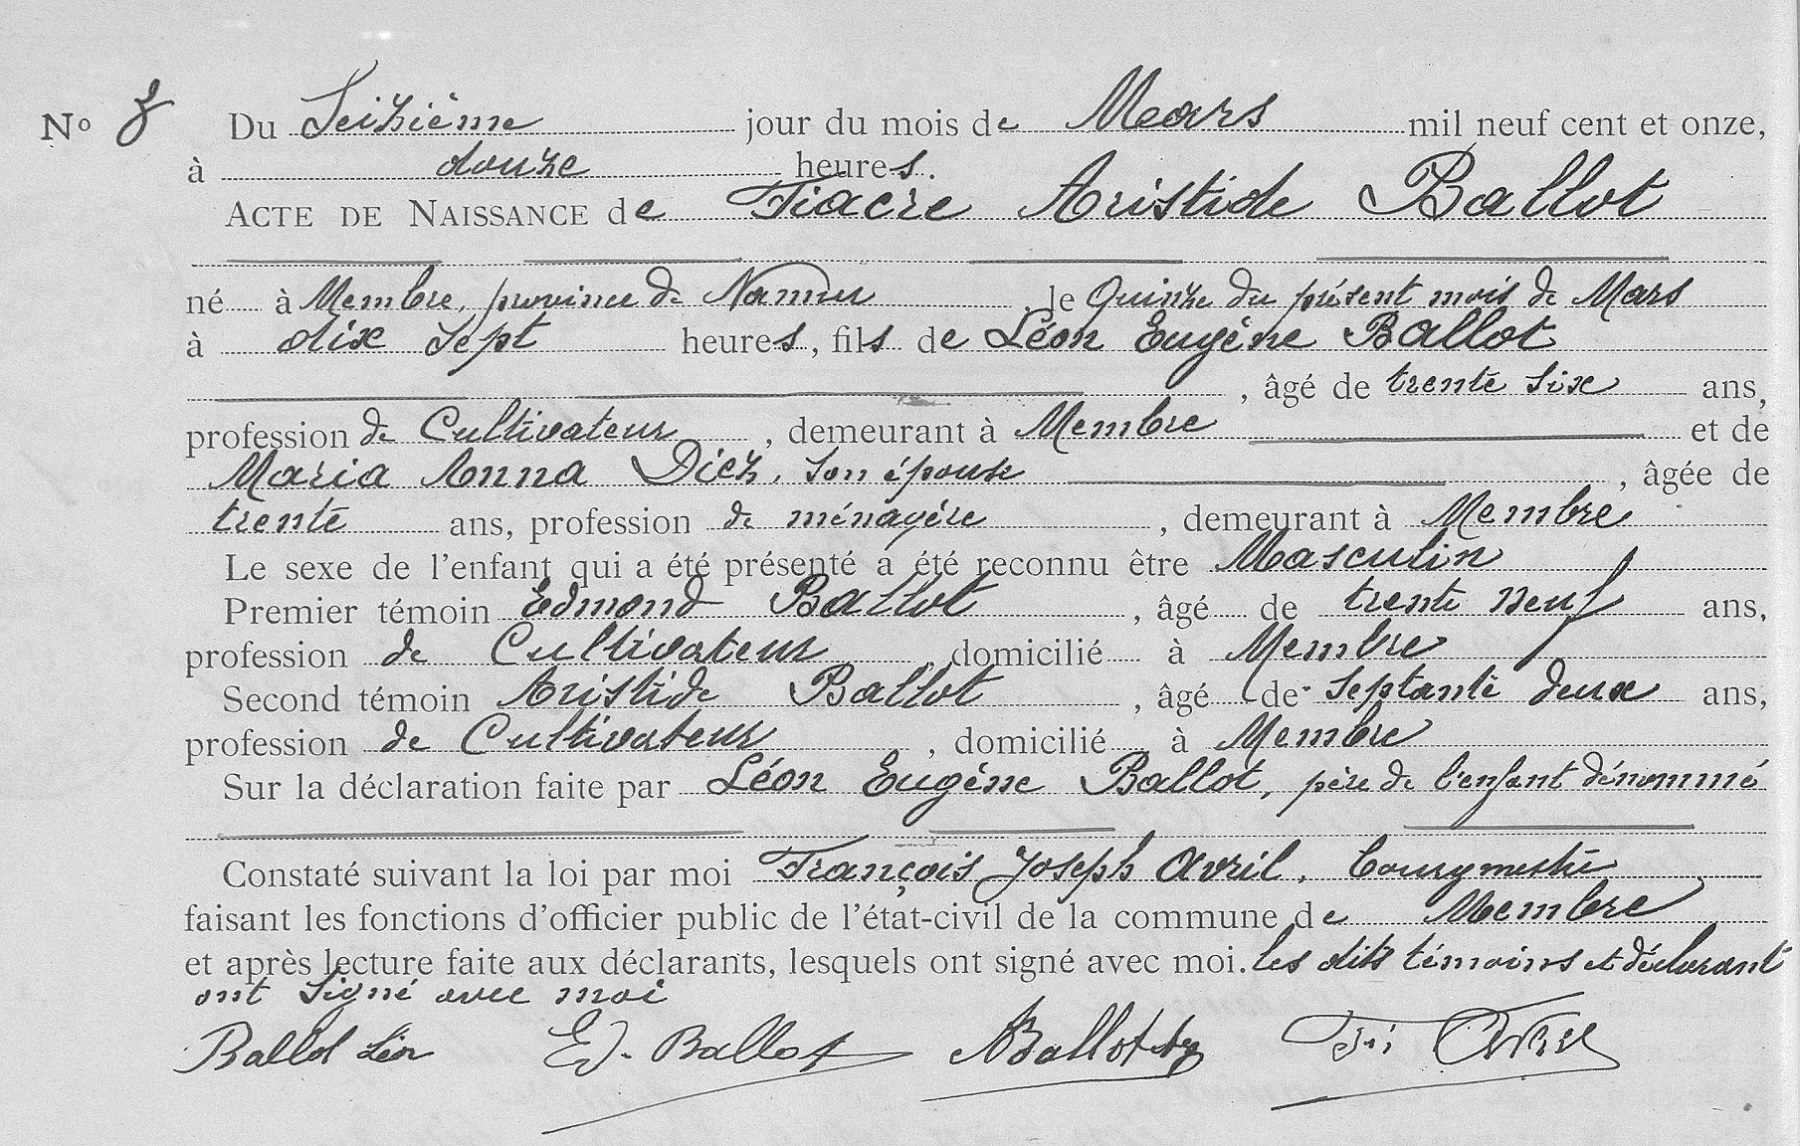 Nº 8 Du Seizième jour du mois de Mars mil neuf cent et onze,
à douze heures.
ACTE DE NAISSANCE de Fiacre Aristide Ballot
né à Membre, province de Namur, le Quinze du présent mois de Mars
à dix sept heures, fils de Léon Eugène Ballot
, âgé de trente six ans,
profession de Cultivateur, demeurant à Membre et de
Maria Anna Diez, son épouse, âgée de
trente ans, profession de ménagère, demeurant à Membre
Le sexe de l'enfant qui a été présenté a été reconnu être Masculin
Premier témoin Edmond Ballot, âgé de trente neuf ans,
profession de Cultivateur, domicilié à Membre
Second témoin Aristide Ballot, âgé de septante deux ans,
profession de Cultivateur, domicilié à Membre
Sur la déclaration faite par Léon Eugène Ballot, père de l'enfant dénommé
Constaté suivant la loi par moi François Joseph Avril, bourgmestre
faisant les fonctions d'officier public de l'état-civil de la commune de Membre
et après lecture faite aux déclarants, lesquels ont signé avec moi. les dits témoins et déclarant
ont signé avec moi
Ballot Léon Ed. Ballot ABallot Avril